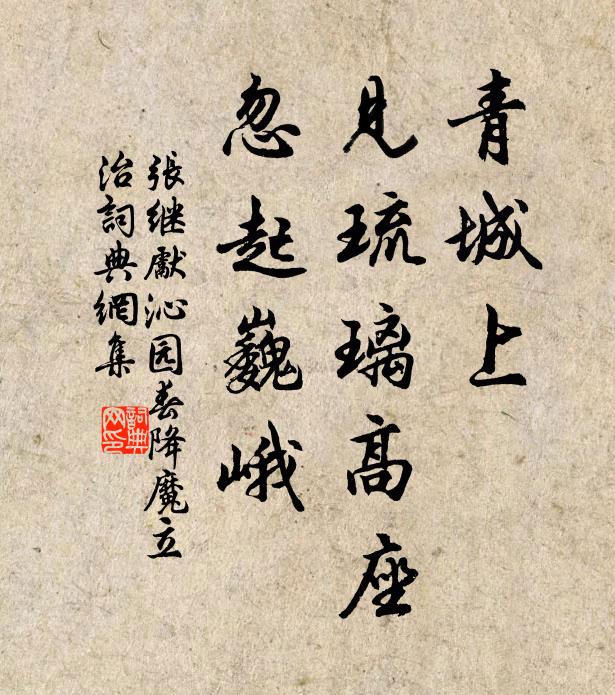 青城上
见琉璃高座
忽起巍峨
張继獻沁园春降魔立
治詞典網集
詞典网印